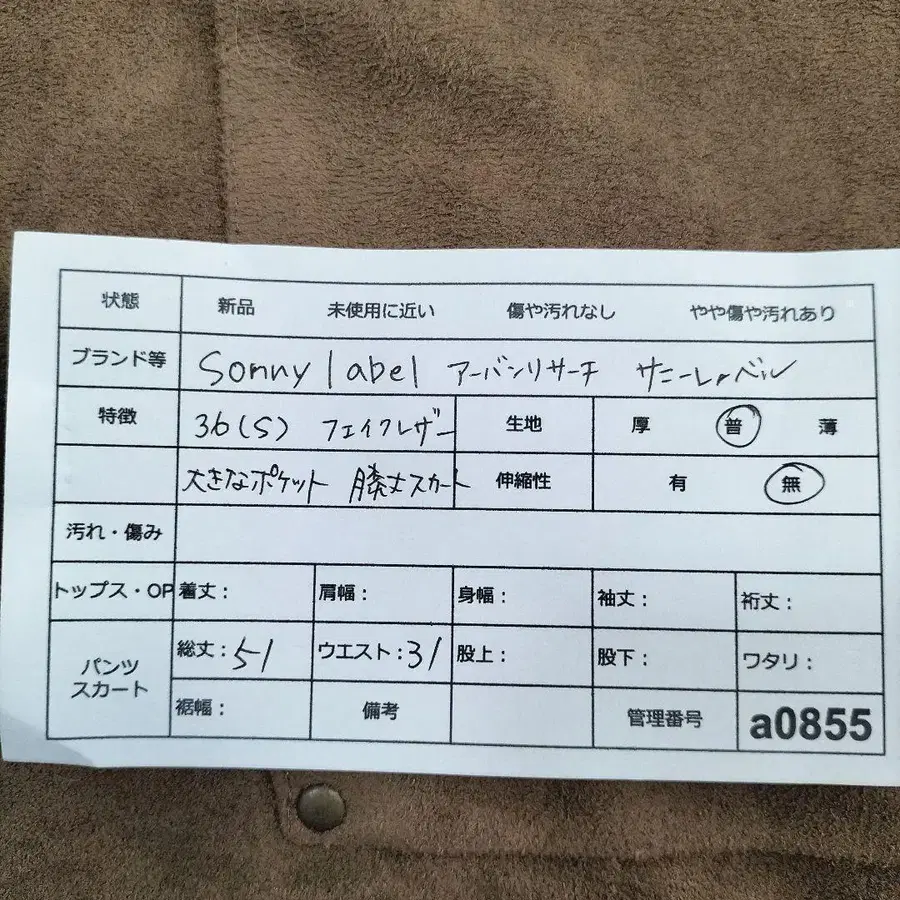 状態 新品 未使用に近い 傷や汚れなし やや傷や汚れあり
ブランド等 Sonny label アーバンリサーチ サニーレーベル
特徴 36(S) フェイクレザー 生地 厚 普 薄
大きなポケット 膝丈スカート 伸縮性 有 無
汚れ・傷み
トップス・OP 着丈： 肩幅： 身幅： 袖丈： 裄丈：
パンツ スカート 総丈：51 ウエスト：31 股上： 股下： ワタリ：
裾幅： 備考 管理番号 a0855